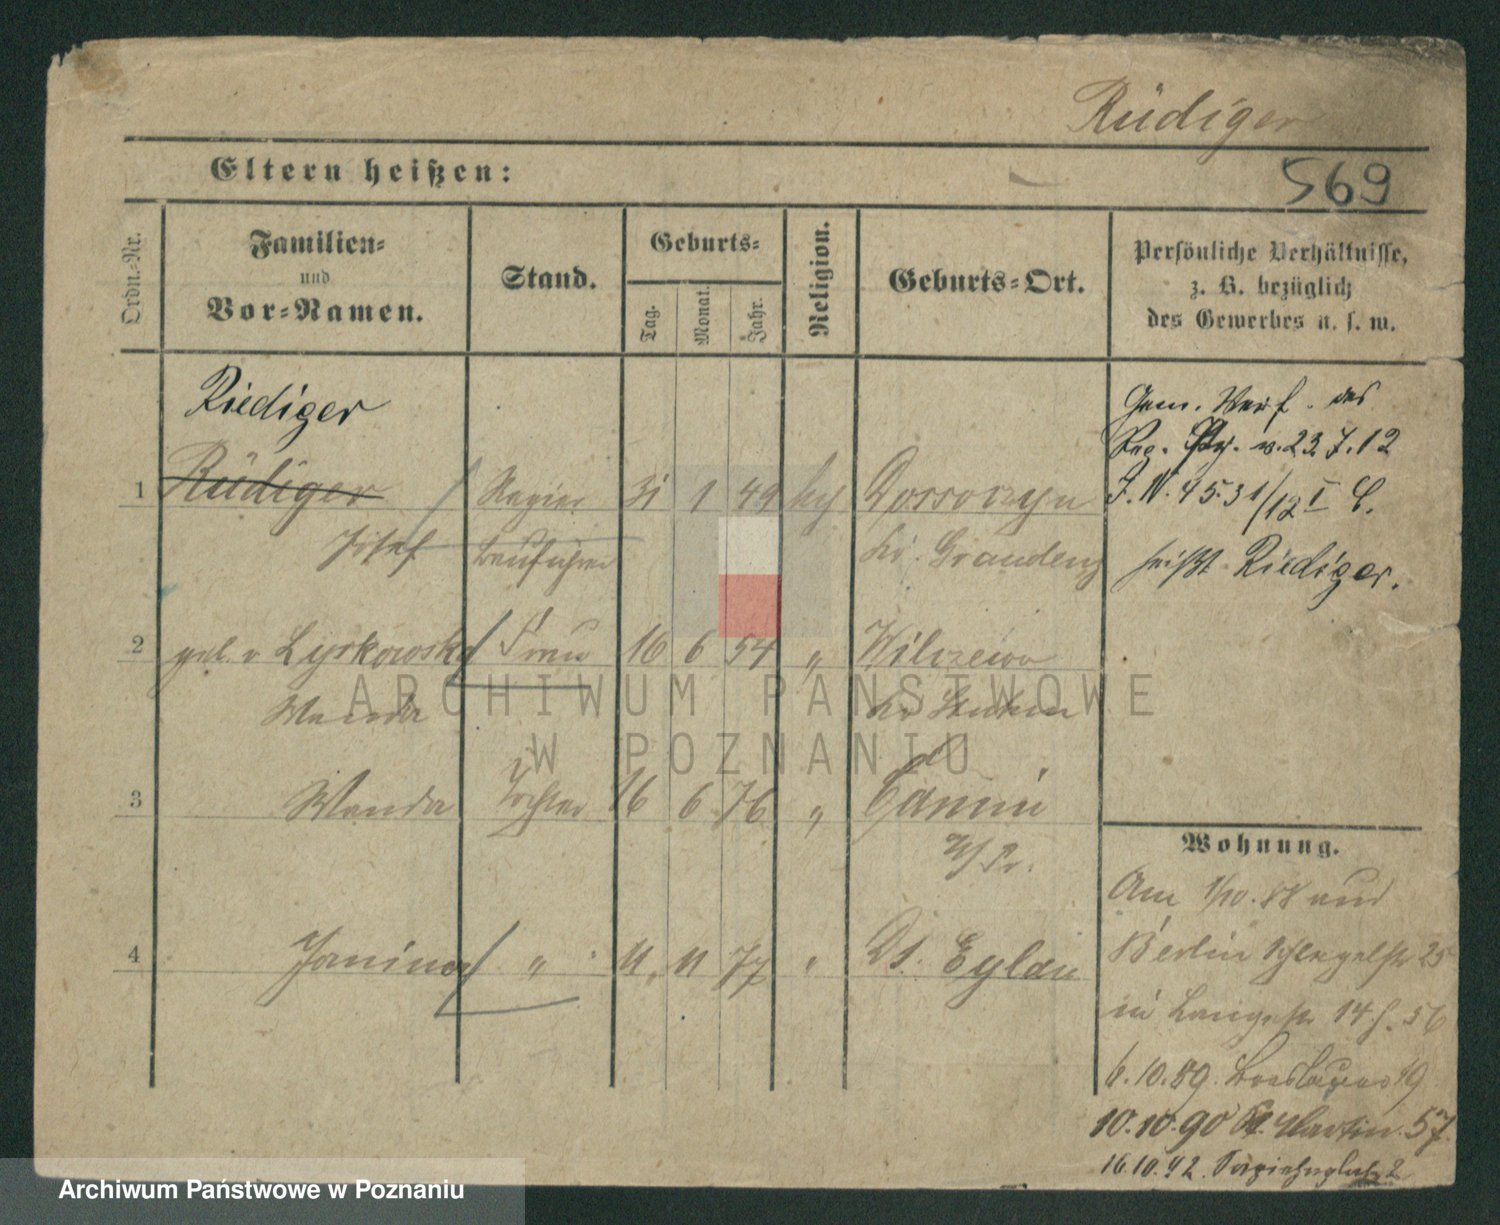 Rüdiger
Eltern heißen:
569
Ordn.-Nr.
Familien-
und
Vor-Namen.
Stand.
Geburts-
Tag.
Monat.
Jahr.
Religion.
Geburts-Ort.
Persönliche Verhältnisse,
z. B. bezüglich
des Gewerbes u. s. w.
Riediger
1 Rüdiger 31 1 49
Josef
Kr. Graudenz
Gem. Verf. des
Reg. Pr. v. 23.7.12
J.N. 4531/12 I C.
heißt Riediger.
2 geb. v Lyskowska Frau 16 6 54 "
Wanda
Kr Stuhm
3 Wanda Tochter 16 6 76 "
W/Pr.
4 Janina " 11. 11 77 " Dt. Eylau
Wohnung.
Am 1/10. 88 aus
Berlin 25
in Langestr 14 f. 56
6.10.89. Breslauer 19
10.10.90 St. Martin 57.
16.10.92.
ARCHIWUM PAŃSTWOWE
W POZNANIU
Archiwum Państwowe w Poznaniu